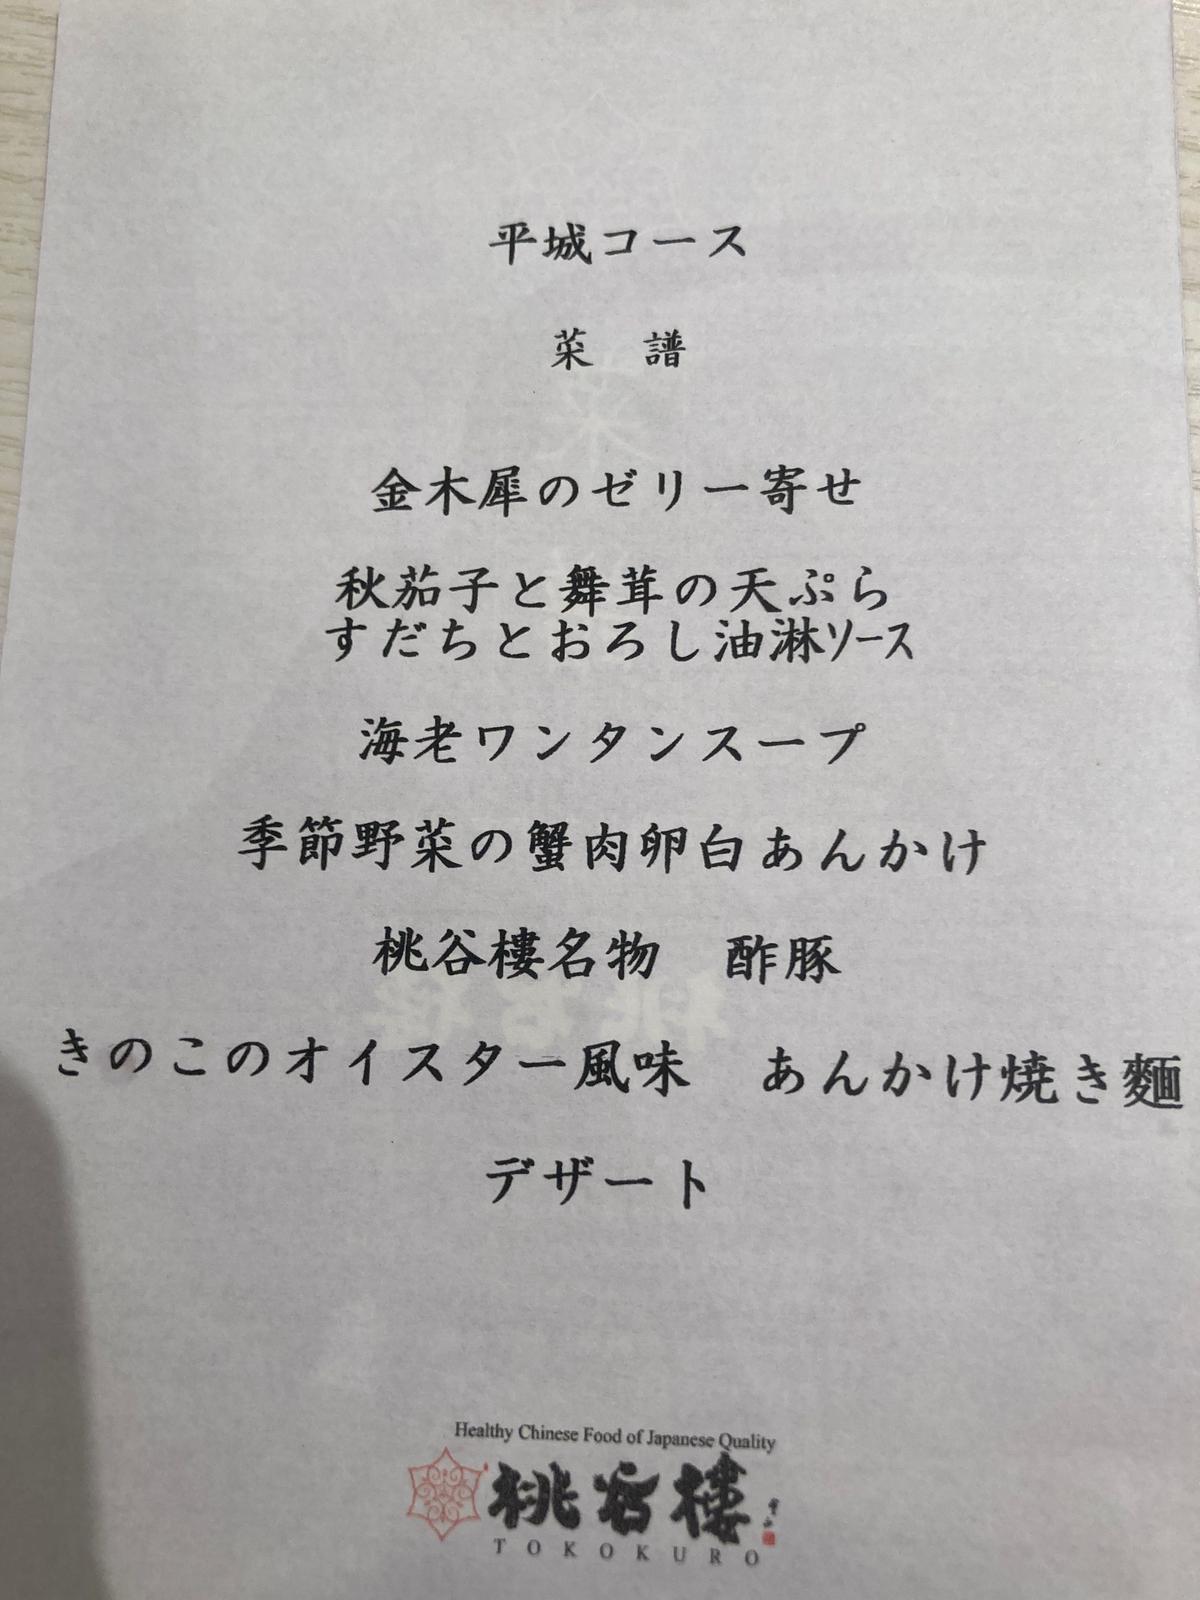 平城コース
菜　譜
金木犀のゼリー寄せ
秋茄子と舞茸の天ぷら
すだちとおろし油淋ソース
海老ワンタンスープ
季節野菜の蟹肉卵白あんかけ
桃谷樓名物　酢豚
きのこのオイスター風味　あんかけ焼き麵
デザート
Healthy Chinese Food of Japanese Quality
桃谷樓
TOKOKURO